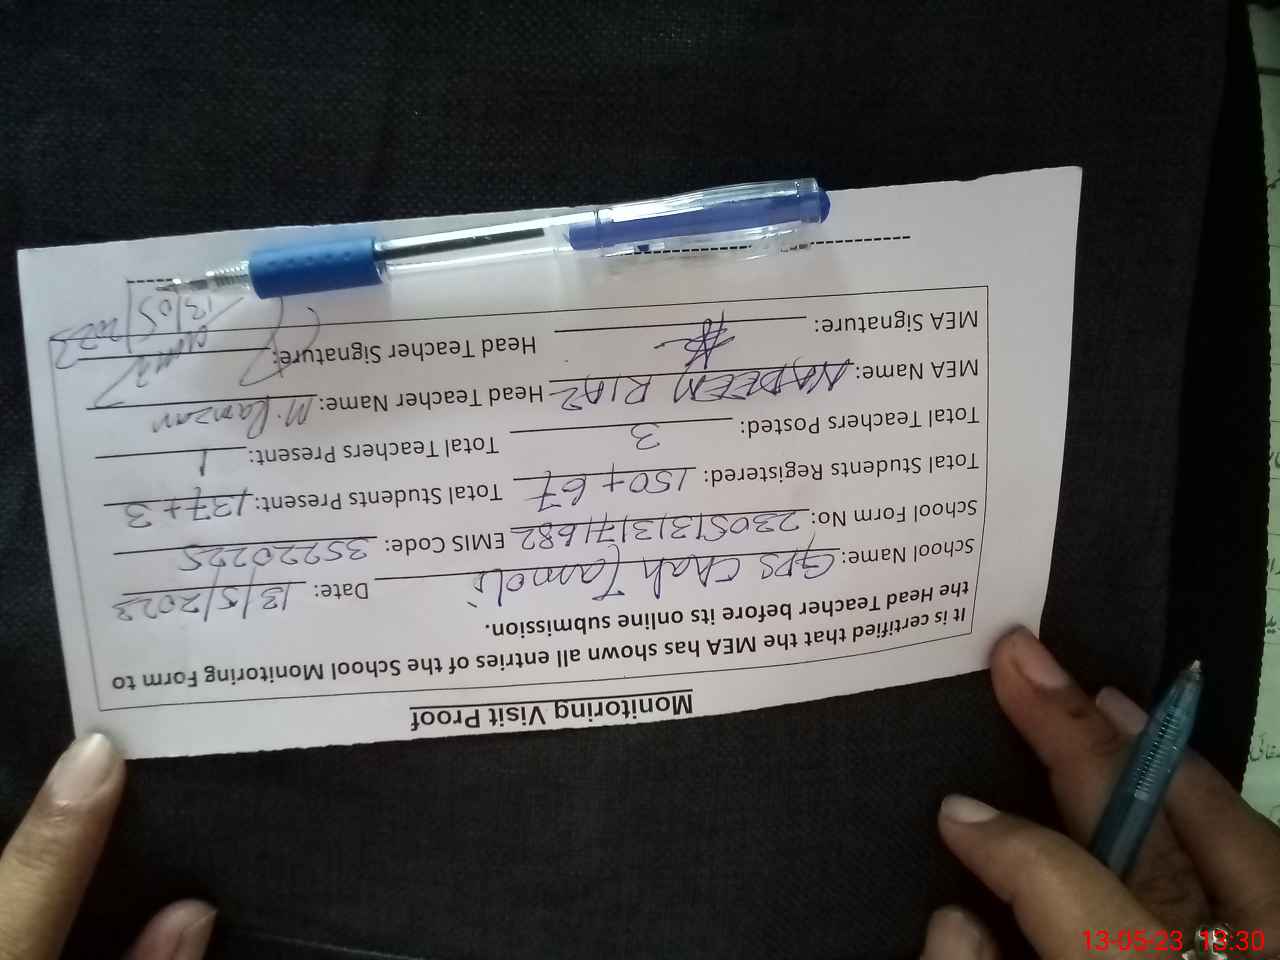 Monitoring Visit Proof
It is certified that the MEA has shown all entries of the School Monitoring Form to
the Head Teacher before its online submission.
School Name: GPS Chah Tamoli Date: 13/5/2023
School Form No: 23051313171682 EMIS Code: 35220225
Total Students Registered: 150+67 Total Students Present: 137+3
Total Teachers Posted: 3 Total Teachers Present: 1
MEA Name: NADEEM RIAZ Head Teacher Name: M. Ramzan
MEA Signature: Head Teacher Signature:
13/05/2023
13-05-23 13:30